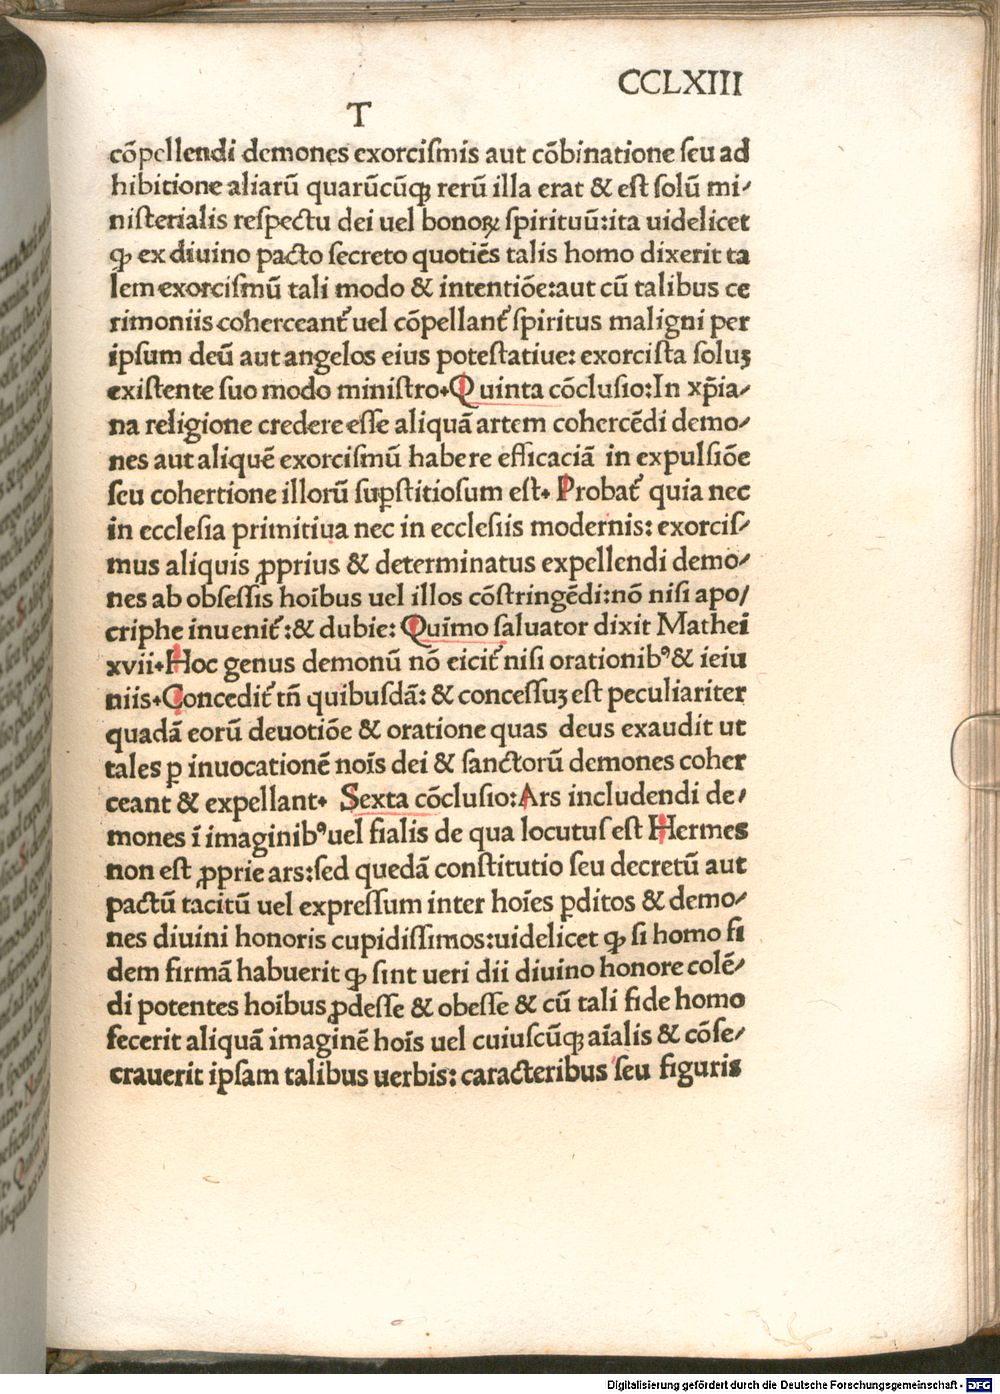 CCLXIII
T
cõpellendi demones exorciſmis aut cõbinatione ſeu ad
hibitione aliarũ quarũcũqꝫ rerũ illa erat & eſt ſolũ mi⸗
niſterialis reſpectu dei uel bonoꝝ ſpirituũ:ita uidelicet
ꝙ ex diuino pacto ſecreto quotiẽs talis homo dixerit ta
lem exorciſmũ tali modo & intentiõe:aut cũ talibus ce
rimoniis coherceant᷑ uel cõpellant᷑ ſpiritus maligni per
ipſum deũ aut angelos eius poteſtatiue: exorciſta ſoluꝫ
exiſtente ſuo modo miniſtro. Quinta cõcluſio:In xp̃ia⸗
na religione credere eſſe aliquã artem cohercẽdi demo⸗
nes aut aliquẽ exorciſmũ habere efficaciã in expulſiõe
ſeu cohertione illorũ ſuꝑſtitioſum eſt. Probat᷑ quia nec
in eccleſia primitiua nec in eccleſiis modernis: exorciſ⸗
mus aliquis ꝓprius & determinatus expellendi demo⸗
nes ab obſeſſis hoĩbus uel illos cõſtringẽdi:nõ niſi apo/
criphe inuenit᷑:& dubie: Quimo ſaluator dixit Mathei
xvii. Hoc genus demonũ nõ eicit᷑ niſi orationibꝰ & ieiu
niis. Concedit᷑ tñ quibuſdã: & conceſſuꝫ eſt peculiariter
quadã eorũ deuotiõe & oratione quas deus exaudit ut
tales ꝑ inuocationẽ noĩs dei & ſanctorũ demones coher
ceant & expellant. Sexta cõcluſio:Ars includendi de⸗
mones ĩ imaginibꝰ uel fialis de qua locutuſ eſt Hermes
non eſt ꝓprie ars:ſed quedã conſtitutio ſeu decretũ aut
pactũ tacitũ uel expreſſum inter hoĩes ꝑditos & demo⸗
nes diuini honoris cupidiſſimos:uidelicet ꝙ ſi homo fi
dem firmã habuerit ꝙ ſint ueri dii diuino honore colẽ⸗
di potentes hoĩbus ꝓdeſſe & obeſſe & cũ tali fide homo
fecerit aliquã imaginẽ hoĩs uel cuiuſcũqꝫ aĩalis & cõſe⸗
crauerit ipſam talibus uerbis: caracteribus ſeu figuris
Digitalisierung gefördert durch die Deutsche Forschungsgemeinschaft - DFG